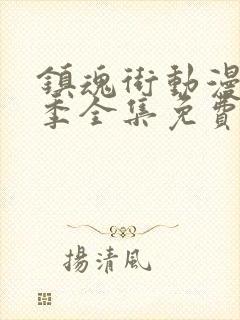 鎮魂街動漫
季全集免費
揚清風